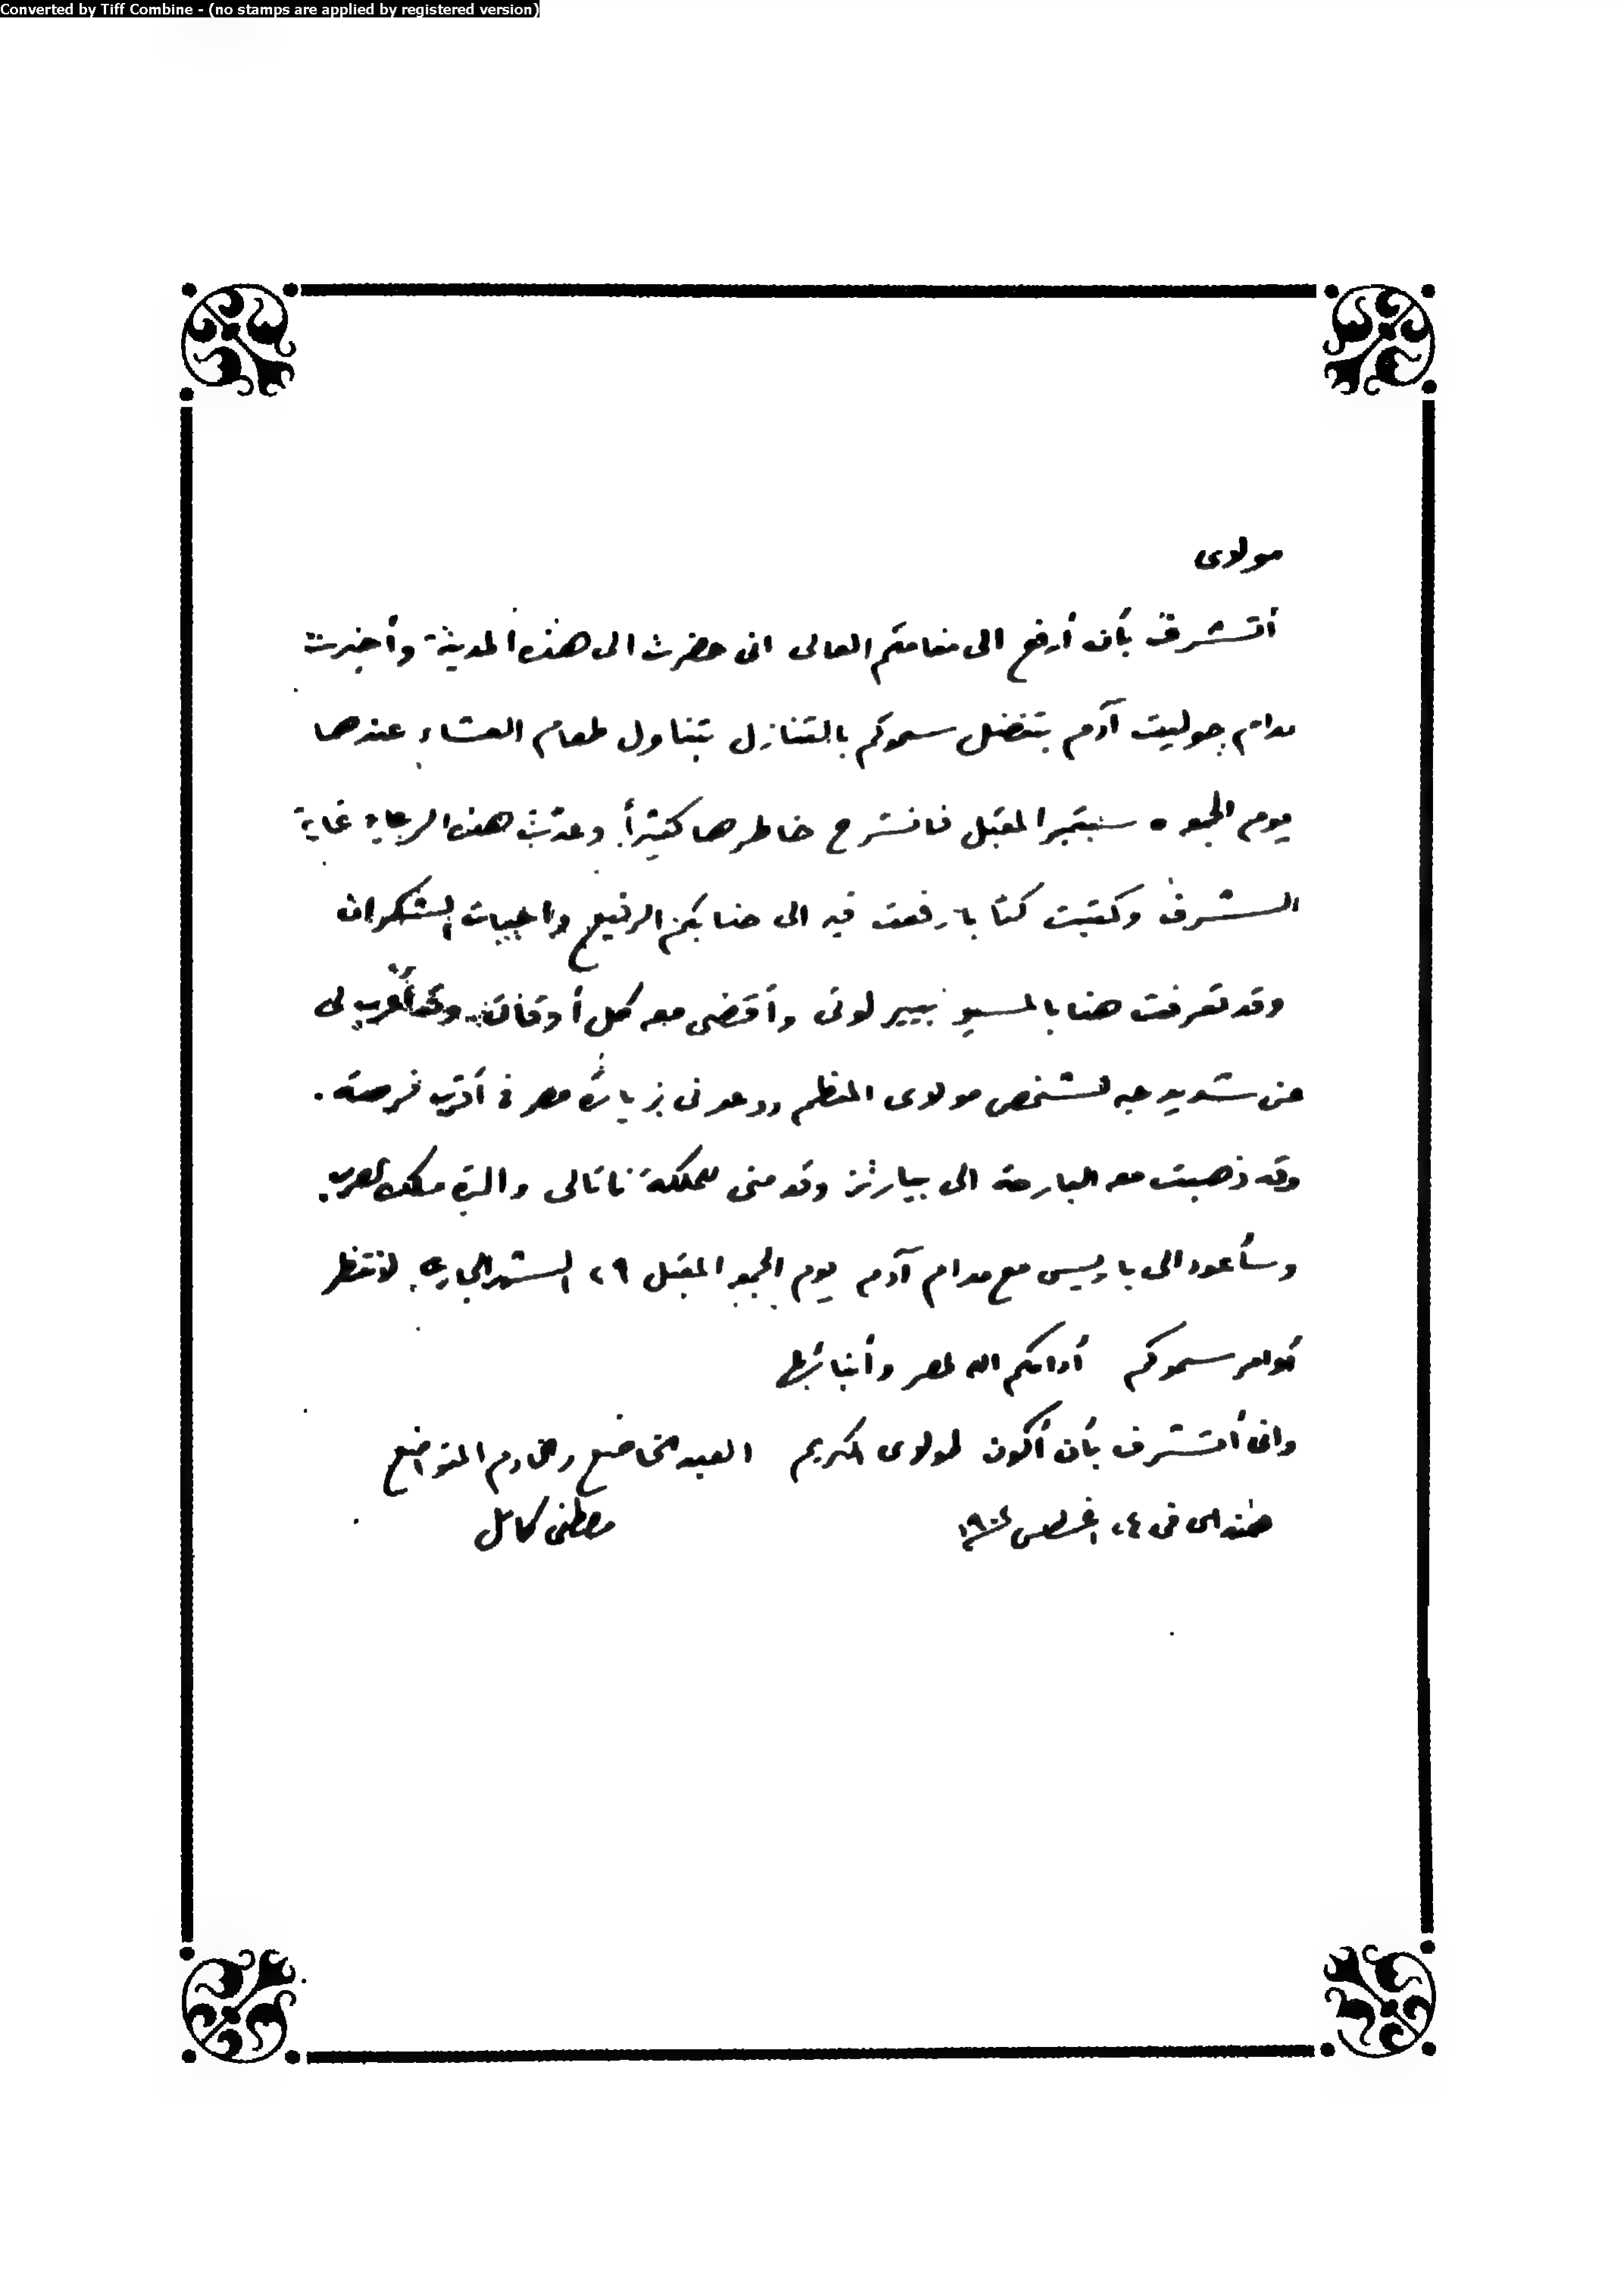 Converted by Tiff Combine - (no stamps are applied by registered version)
مولاى
أتشرف بأن أرفع الى مقامكم العالى انى حضرت الى هذه المدينة وأخبرت
مدام جوليت آدم بتفضل سموكم بالتنازل بتناول طعام العشاء عندها
يوم الجمعه ٥ سبتمبر المقبل فانشرح خاطرها كثيراً وعدّت هذه الرعاية غاية
الشرف وكتبت كتابا رفعت فيه الى جنابكم الرفيع واجبات الشكران
وقد تعرفت هنا بالمسيو بيير لوتى وأقضى معه كل أوقاتى وقد أعرب لى
عن شديد حبه لشخص مولاى المعظم ووعدنى بزيارة مصر فى أقرب فرصة .
وقد ذهبت معه البارحة الى بيارتز وقدمنى للملكة ناتالى والدة ملك الصرب .
وسأعود الى باريس مع مدام آدم يوم الجمعه المقبل ٢٩ الشهر الجارى لأنتظر
أوامر سموكم أدامكم الله لمصر وأبنائها
وانى أتشرف بأن أكون لمولاى الكريم العبد الخاضع والخادم المتواضع
هنداى فى ٢٤ اغسطس
مصطفى كامل